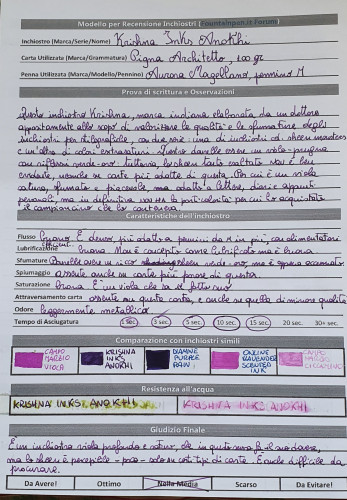 Modello per Recensione Inchiostri (Fountainpen.it Forum)
Inchiostro (Marca/Serie/Nome) Krishna Inks Anokhi
Carta Utilizzata (Marca/Grammatura) Pigna Architetto, 100 gr
Penna Utilizzata (Marca/Modello/Pennino) Aurora Magellano, pennino M
Prova di scrittura e Osservazioni
Questo inchiostro Krishna, marca indiana elaborata da un dottore
appositamente allo scopo di valorizzare le qualità e le sfumature degli
inchiostri per stilografiche,
un'altra di colori
con riflessi verde-oro. Tuttavia,
evidente, anche su carte più adatte di questa. Per cui è un viola
saturo, sfumato e piacevole, ma adatto a lettere, diari e appunti
personali, ma in definitiva non ha le particolarità per cui ho acquistato
il campioncino che lo conteneva.
Caratteristiche dell'inchiostro
Flusso buono. È denso, più adatto a pennini da M in più, con alimentatori
Lubrificazione buona. Non è concepito come lubrificato ma è buona
Sfumature
Spiumaggio assente anche su carte più porose di questa.
Saturazione buona. È un viola che sa il fatto suo
Attraversamento carta assente su questa carta, e anche su quella di minore qualità
Odore leggermente metallico
Tempo di Asciugatura 1 sec. 3 sec. 5 sec. 10 sec. 15 sec. 20 sec. 30+ sec.
Comparazione con inchiostri simili
CAMPO MARZIO VIOLA
KRISHNA INKS ANOKHI
DIAMINE PURPLE RAIN
ONLINE LAVENDER SCENTED INK
CAMPO MARZIO CICLAMINO
Resistenza all'acqua
KRISHNA INKS ANOKHI
KRISHNA INKS ANOKHI
Giudizio Finale
È un inchiostro viola profondo e saturo, che in questo
ma lo sheen è percepibile - poco - solo su certi tipi di carta. È anche difficile da
procurare.
Da Avere! Ottimo Nella Media Scarso Da Evitare!